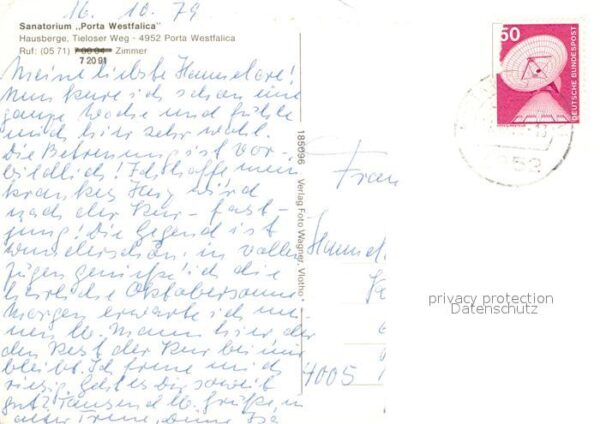 16. 10. 79
Sanatorium „Porta Westfalica"
Hausberge, Tieloser Weg - 4952 Porta Westfalica
Ruf: (05 71) Zimmer
7 20 91
Meine liebste Hannelore!
Nun kure ich schon eine
ganze Woche und fühle
mich hier sehr wohl.
Die Betreuung ist vor-
bildlich! Ich hoffe mein
krankes Herz wird
nach der Kur - fast -
jung! Die Gegend ist
wunderschön, in vollen
Zügen genieße ich die
herrliche Oktobersonne.
Morgen erwarte ich mei-
nen lb. Mann hier der
den Rest der Kur bei mir
bleibt. Ich freue mich
riesig. Geht es Dir soweit
gut? Tausend lb. Grüße, in
alter Treue, Deine
185096 Verlag Foto Wagner, Vlotho
Frau
4005
50
DEUTSCHE BUNDESPOST
4952
privacy protection
Datenschutz